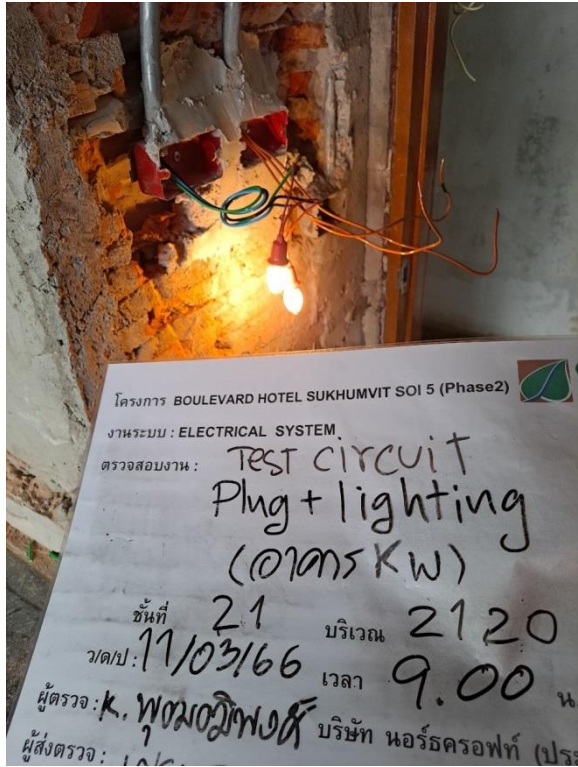 โครงการ BOULEVARD HOTEL SUKHUMVIT SOI 5 (Phase2)
งานระบบ : ELECTRICAL SYSTEM
ตรวจสอบงาน : Test circuit
Plug + lighting
(อาคาร KW)
ชั้นที่ 21 บริเวณ 2120
ว/ด/ป : 11/03/66 เวลา 9.00 น
ผู้ตรวจ : K. บริษัท นอร์ธครอฟท์ (ประ
ผู้ส่งตรวจ :